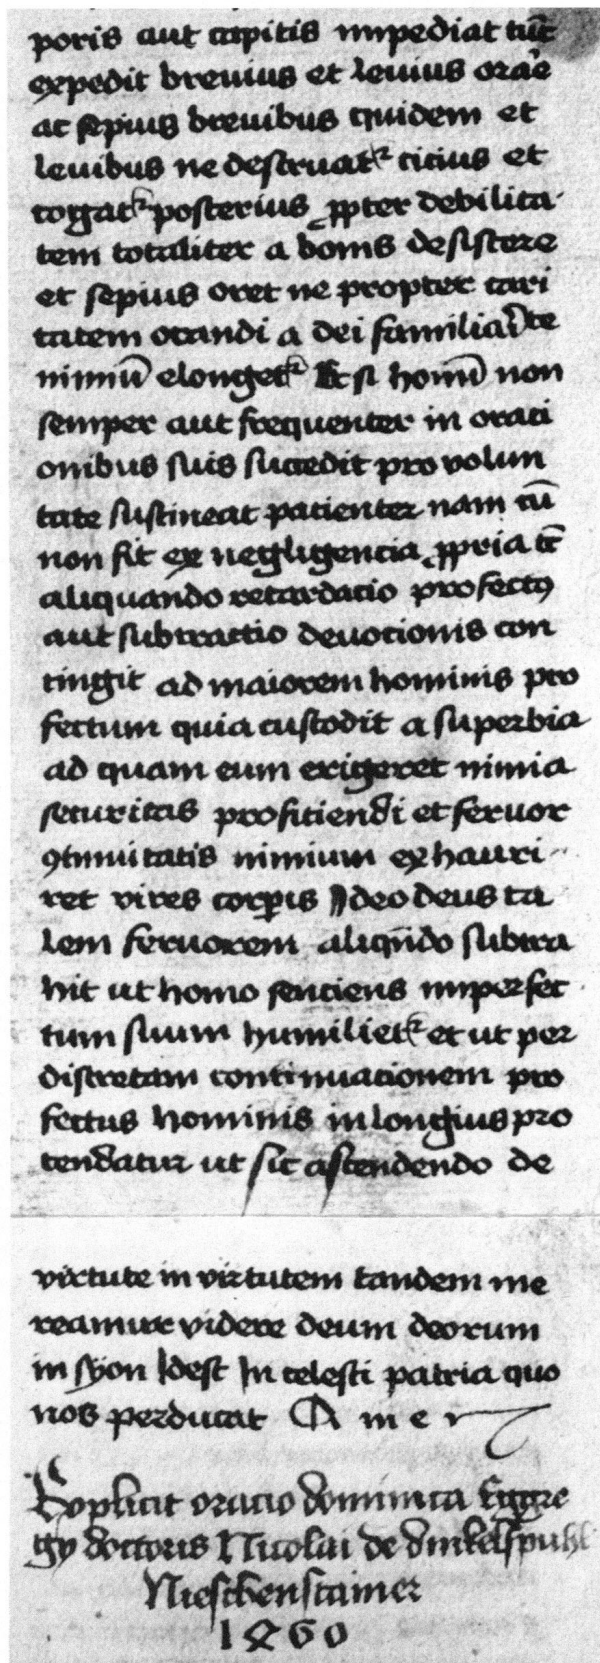 poris aut capitis impediat tūc
expedit breuius et leuius orar̄e
ac sepius breuibus quidem et
leuibus ne destruatꝛ cicius et
cogatꝛ posterius ꝓpter debilita
tem totaliter a bonis desistere
et sepius oret ne propter rari
tatem orandi a dei familiari̅te
nimiū elongetꝛ Et si homī non
semper aut frequenter in oraci
onibus suis succedit pro volun
tate sustineat pacienter nam cū
non fit ex negligencia ꝓpria tc̄
aliquando retardacio profectꝰ
aut subtractio deuocionis con
tingit ad maiorem hominis pro
fectum quia custodit a superbia
ad quam eum erigeret nimia
securitas proficiendi et feruor
ꝯtinuitatis nimium exhauri
ret vires corꝑis Ideo deus ta
lem feruorem aliqn̄do subtra
hit ut homo senciens imperfec
tum suum humilietꝛ et ut per
discretam continuacionem pro
fectus hominis in longius pro
tendatur ut sic ascendendo de
virtute in virtutem tandem me
reamur videre deum deorum
in syon Idest In celesti patria quo
nos perducat Amen
Explicit oracio dominica Eggre
gy doctoris Nicolai de dinkelspuhl
Nieschenstainer
1460